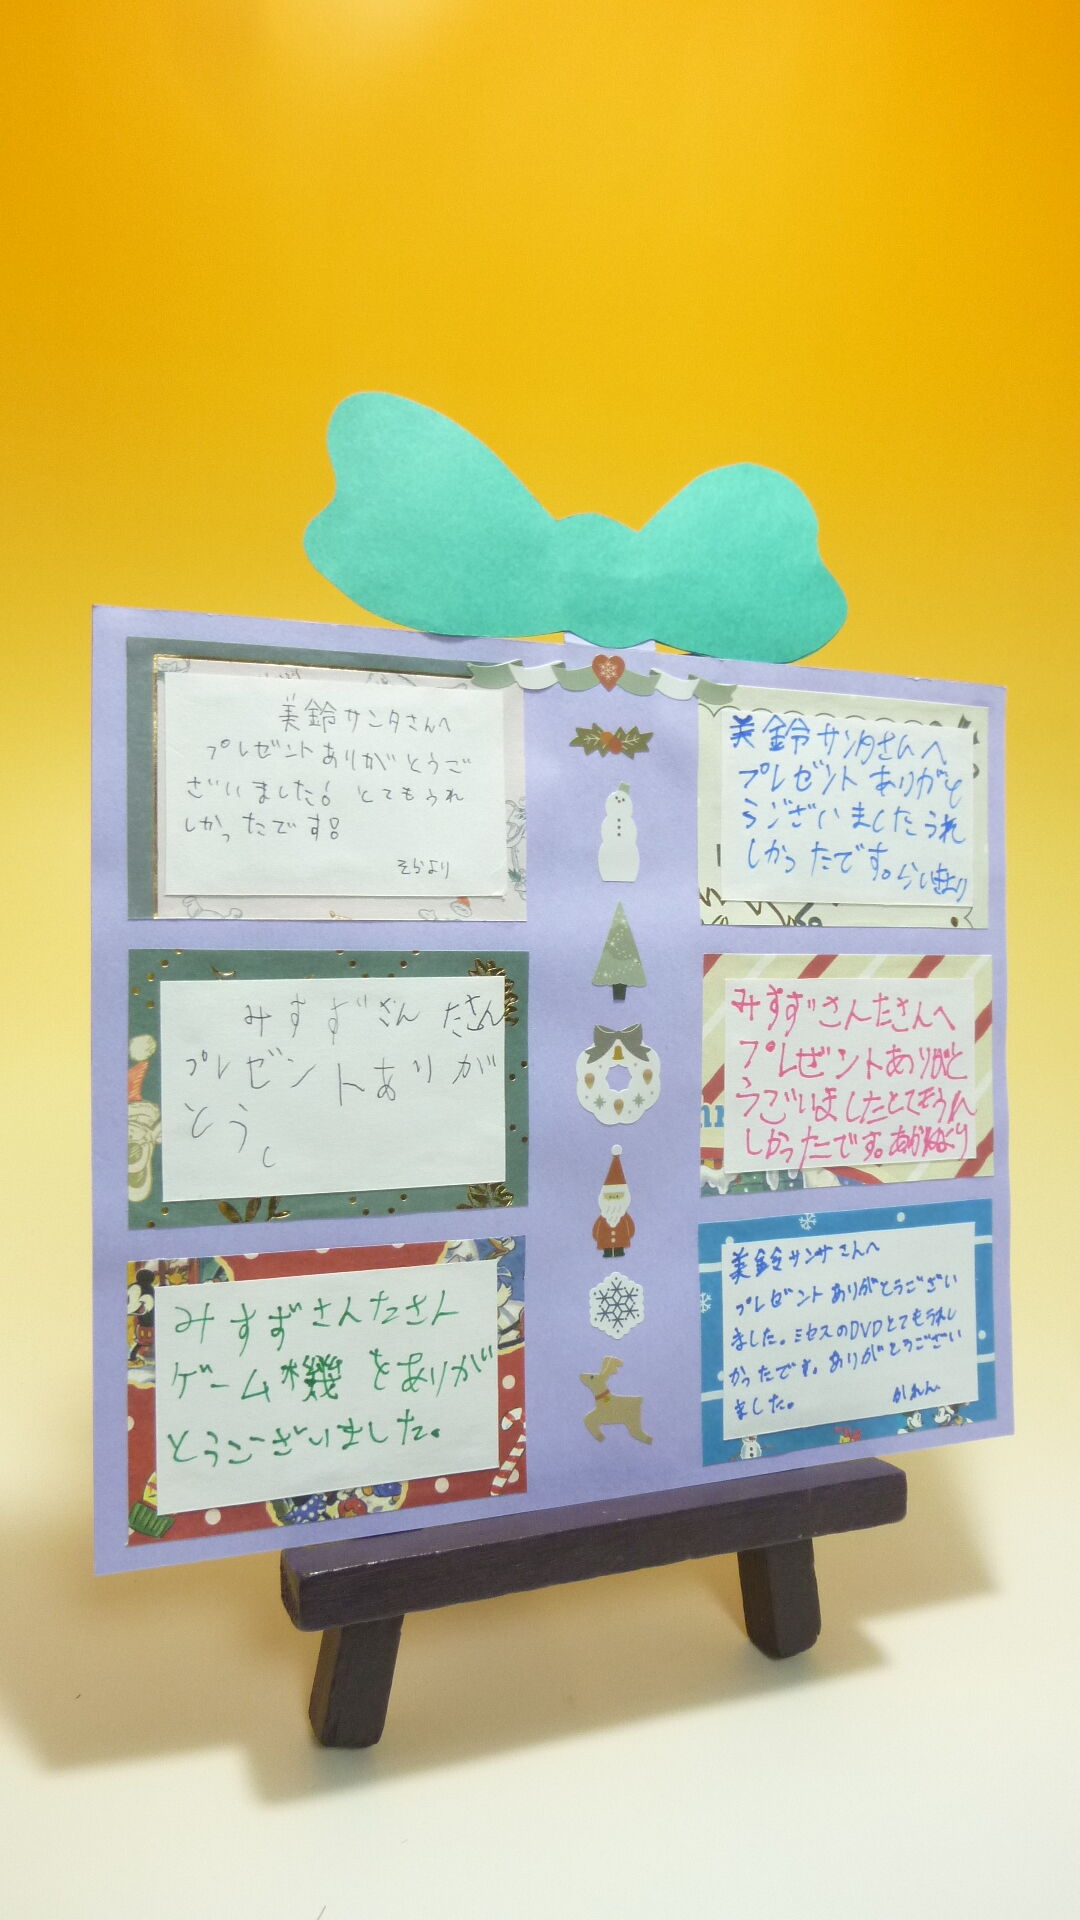 美鈴サンタさんへ
プレゼントありがとうご
ざいました! とてもうれ
しかったです!
そらより
みすずさん たさん
プレゼントあり が
とう。
みすずさんたさん
ゲーム機をありが
とうございました。
美鈴サンタさんへ
プレゼントありがと
うございましたうれ
しかったです。
みすずさんたさんへ
プレゼントありがと
うございましたとてもうれ
しかったです。あかねより
美鈴サンサさんへ
プレゼントありがとうござい
ました。ミセスのDVDとてもうれし
かったです。ありがとうござい
ました。
かれん